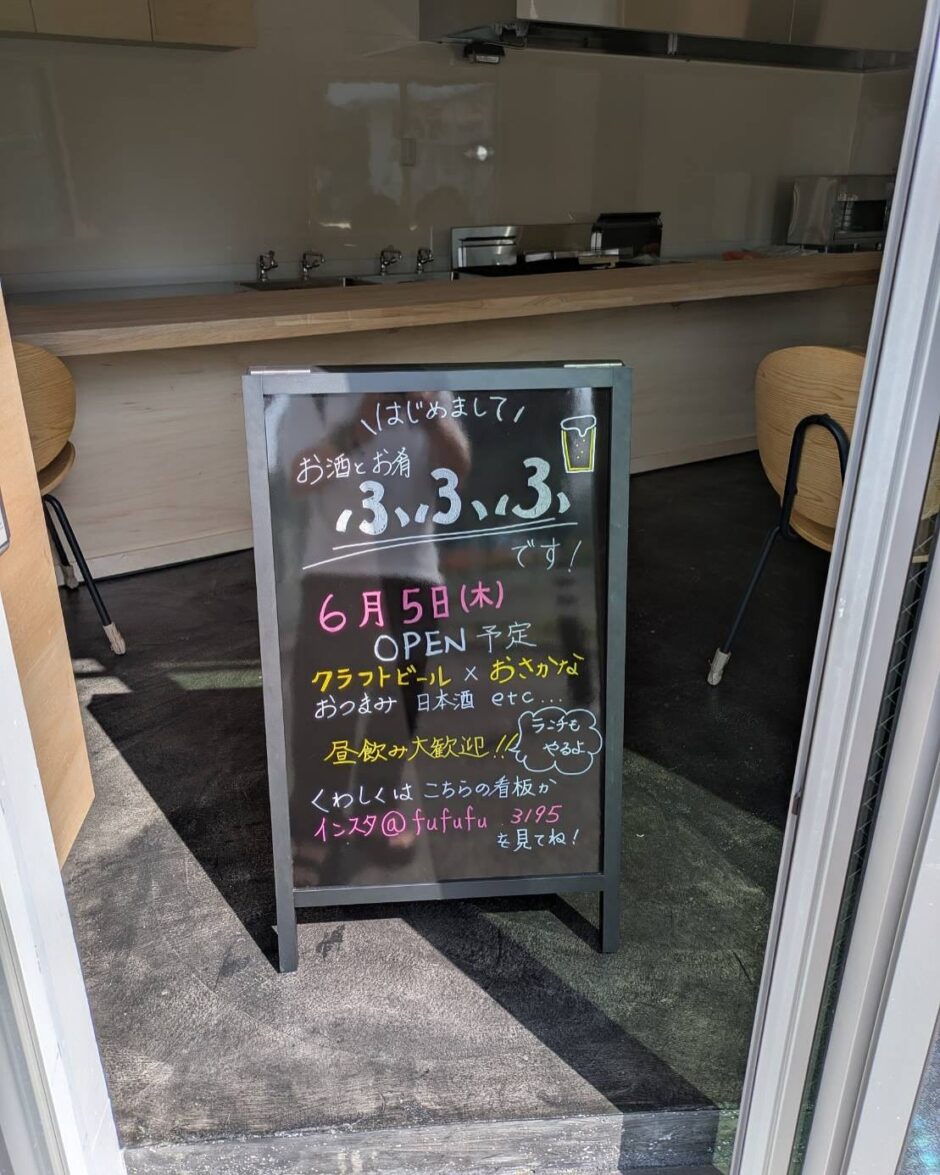 \はじめまして/
お酒とお肴
ふふふ
です!
6月5日(木)
OPEN 予定
クラフトビール × おさかな
おつまみ 日本酒 etc...
昼飲み大歓迎!!
ランチも
やるよ♪
くわしくは こちらの看板か
インスタ@fufufu_3195
を見てね!